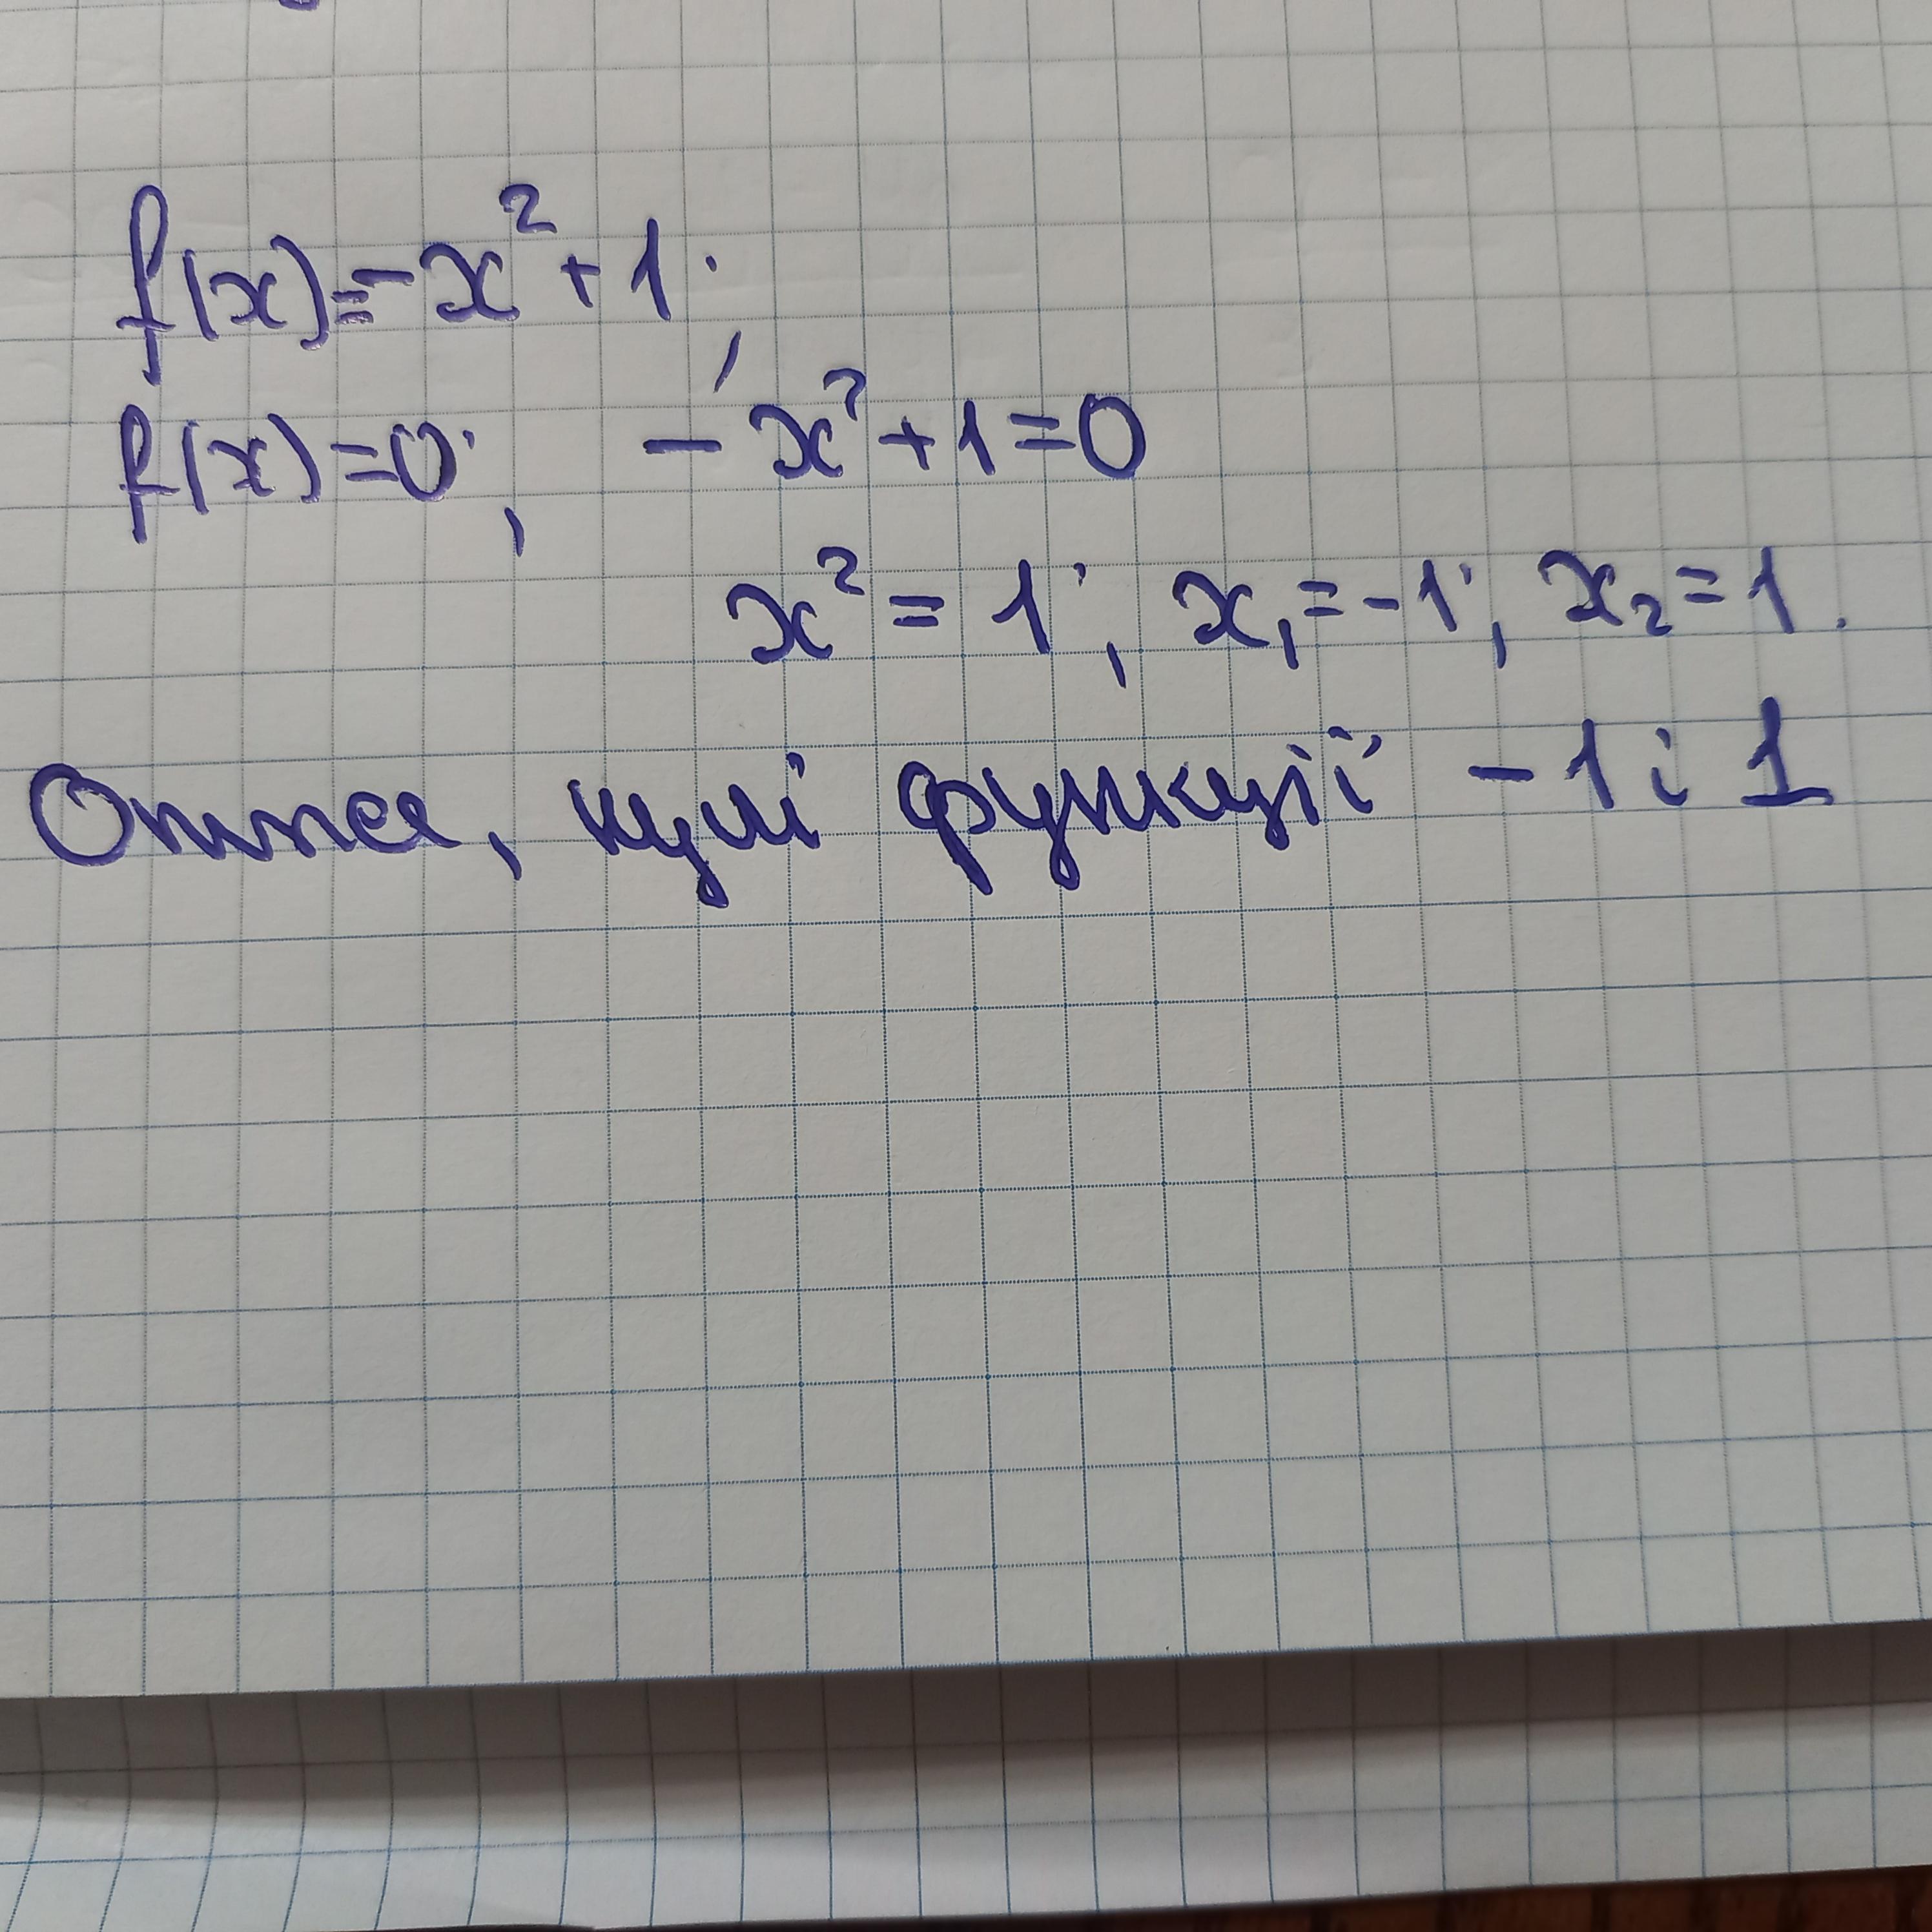 f(x)=-x²+1;
f(x)=0; -x²+1=0
x²=1; x₁=-1; x₂=1.
Отже, нулі функції -1 і 1